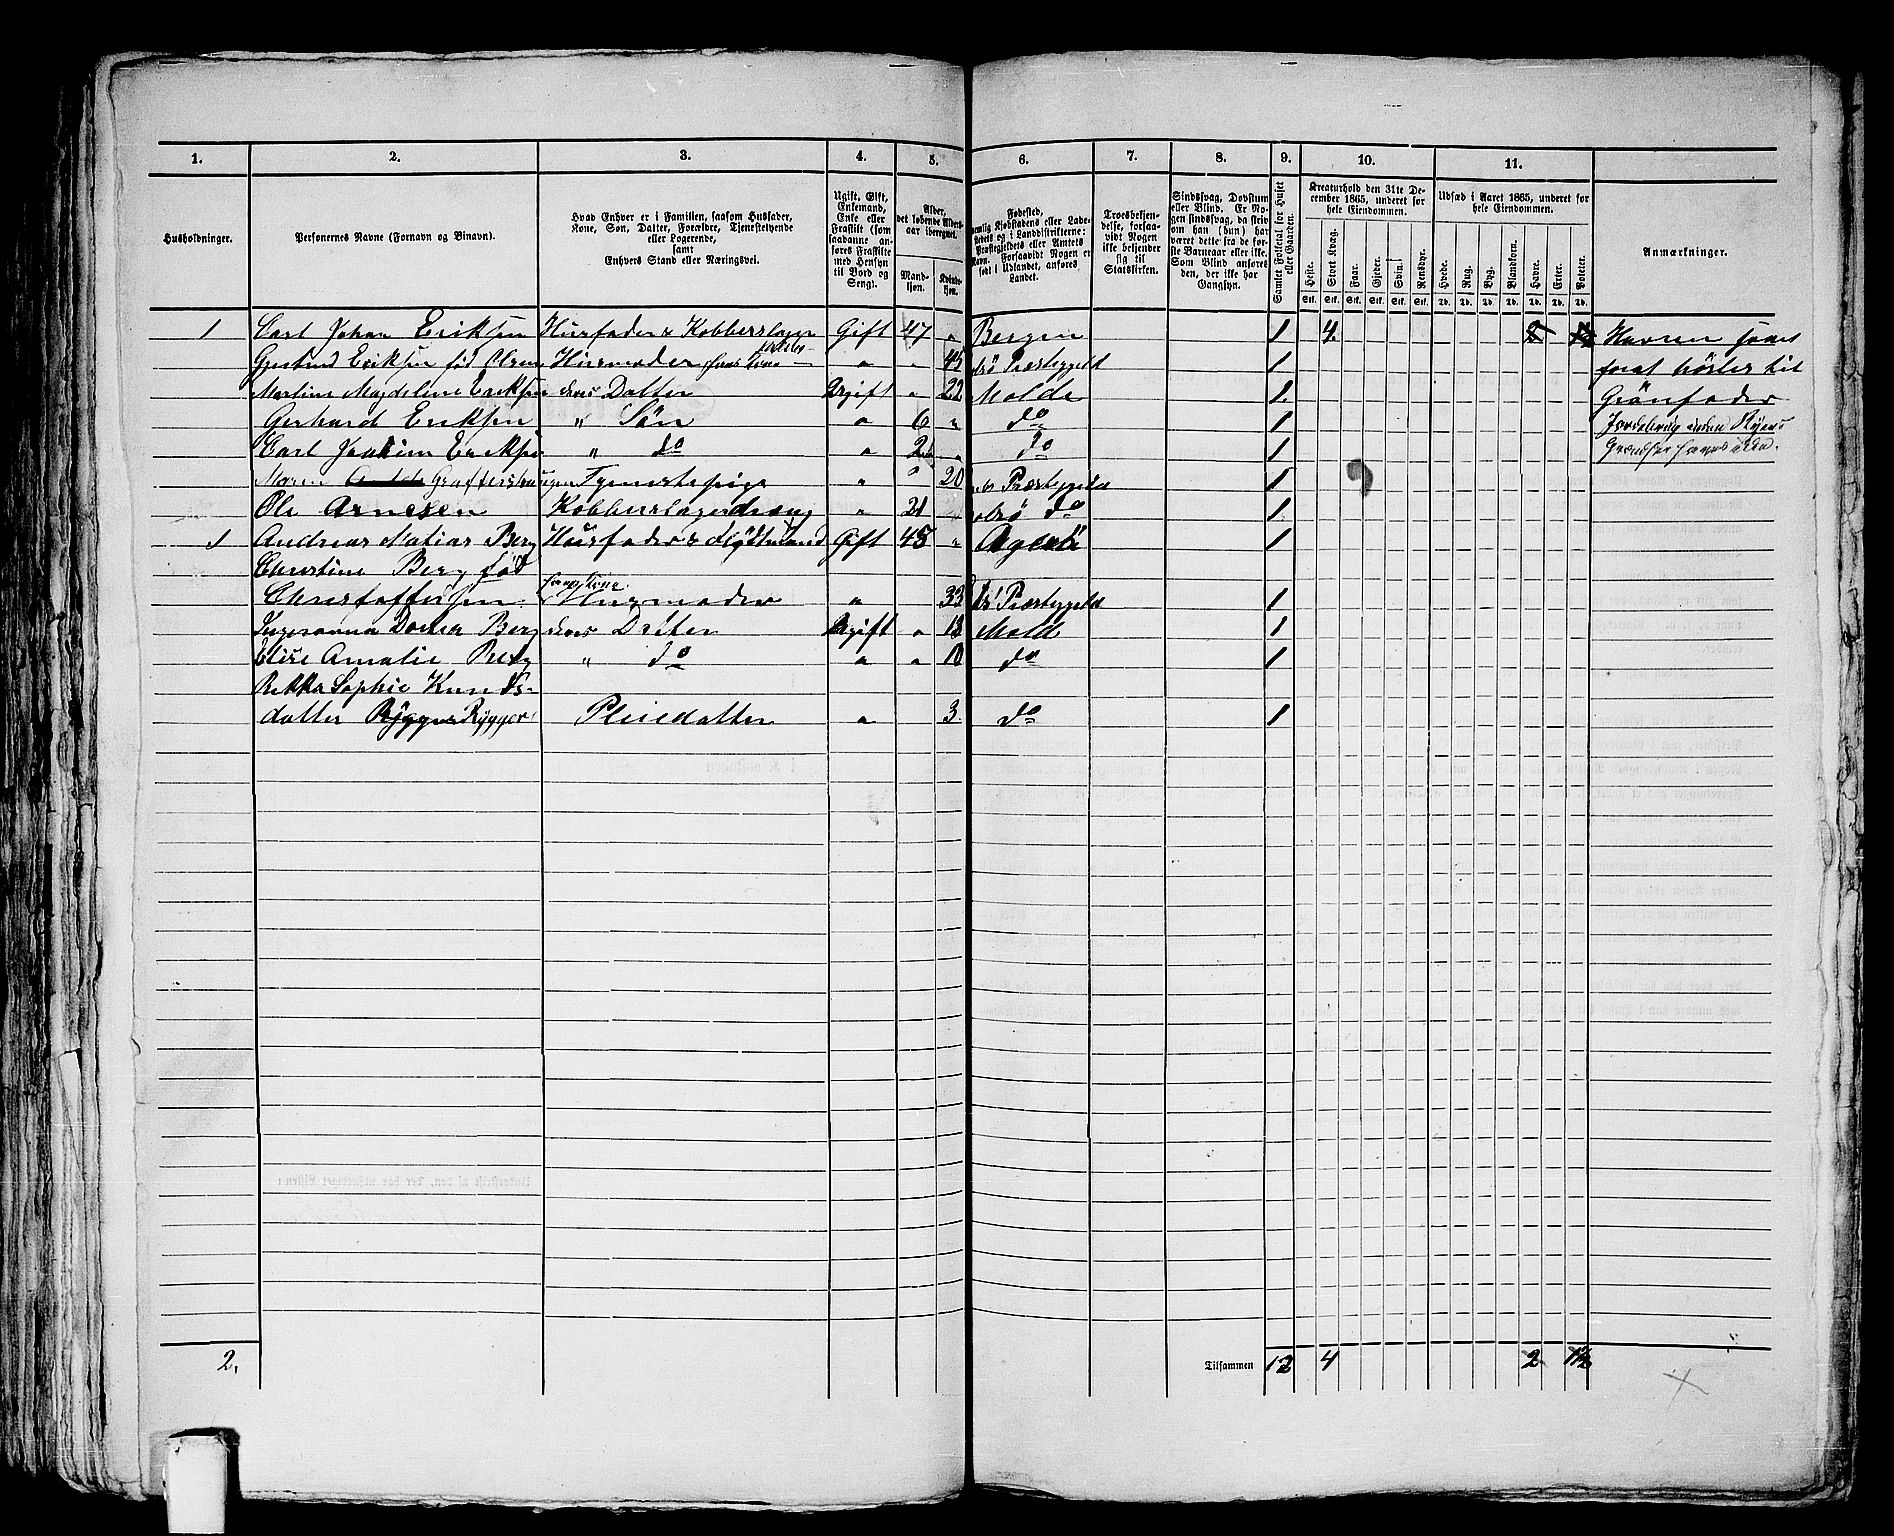 1. 2. 3. 4. 5. 6. 7. 8. 9. 10. 11.
Husholdninger.
Personernes Navne (Fornavn og Binavn).
Hvad Enhver er i Familien, saasom Husfader,
Kone, Søn, Datter, Forældre, Tjenestetyende
eller Logerende,
samt
Enhvers Stand eller Næringsvei.
Ugift, Gift,
Enkemand,
Enke eller
Fraskilt (som
saadanne an-
føres Fraskilte
med Hensyn
til Bord og
Seng).
Alder,
det løbende Alders-
aar iberegnet.
Mand-
kjøn.
Kvinde-
kjøn.
Fødested,
Kjøbstadens eller Lade-
stedets og i Landdistrikterne:
Præstegjeldets eller Amtets
Navn. Forsaavidt Nogen er
født i Udlandet, anføres
Landet.
Troesbekjen-
delse, forsaa-
vidt Nogen
ikke bekjender
sig til
Statskirken.
Sindssvag, Døvstum
eller Blind. Er No-
gen sindssvag, da skriv
om han (hun) har
været dette fra de før-
ste Barneaar eller ikke.
Som Blind anføres
den, der ikke har
Gangsyn.
Samlet Folketal for Huset
eller Gaarden.
Kreaturhold den 31te De-
cember 1865, underet for
hele Eiendommen.
Heste. Stort Kvæg. Faar. Gjeder. Svin. Rensdyr.
Stk. Stk. Stk. Stk. Stk. Stk.
Udsæd i Aaret 1865, underet for
hele Eiendommen.
Hvede. Rug. Byg. Blandkorn. Havre. Erter. Poteter.
Td. Td. Td. Td. Td. Td. Td.
Anmærkninger.
1 Carl Johan Eriksen Husfader & Kobberslager Gift 47 " Bergen 1 4 2 Havren saaet
Gjertrud Eriksen fød Olsen Husmoder hans Kone " " 45 Præstegjeld 1 forat höstes til
Martine Magdelene Eriksen deres Datter Ugift " 22 Molde 1 Grönfoder
Gerhard Eriksen " Sön " 6 " do 1
Carl Joakim Eriksen " do " 2 " do 1
Maren Tjenestepige " " 20 Præstegjeld 1
Ole Arnesen Kobberslagerdreng " 21 do 1
1 Andreas Matias Berg Husfader & Gift 48 " 1
Christine Berg fød
Christoffersen hans Kone Husmoder " 33 Præstegjeld 1
Berg deres Datter Ugift " 12 Mold 1
Elise Amalie Berg " do " " 10 do 1
Rikka Sophie Knuds-
datter Rygger Pleiedatter " 3 do 1
2. Tilsammen 12 4 2 1½